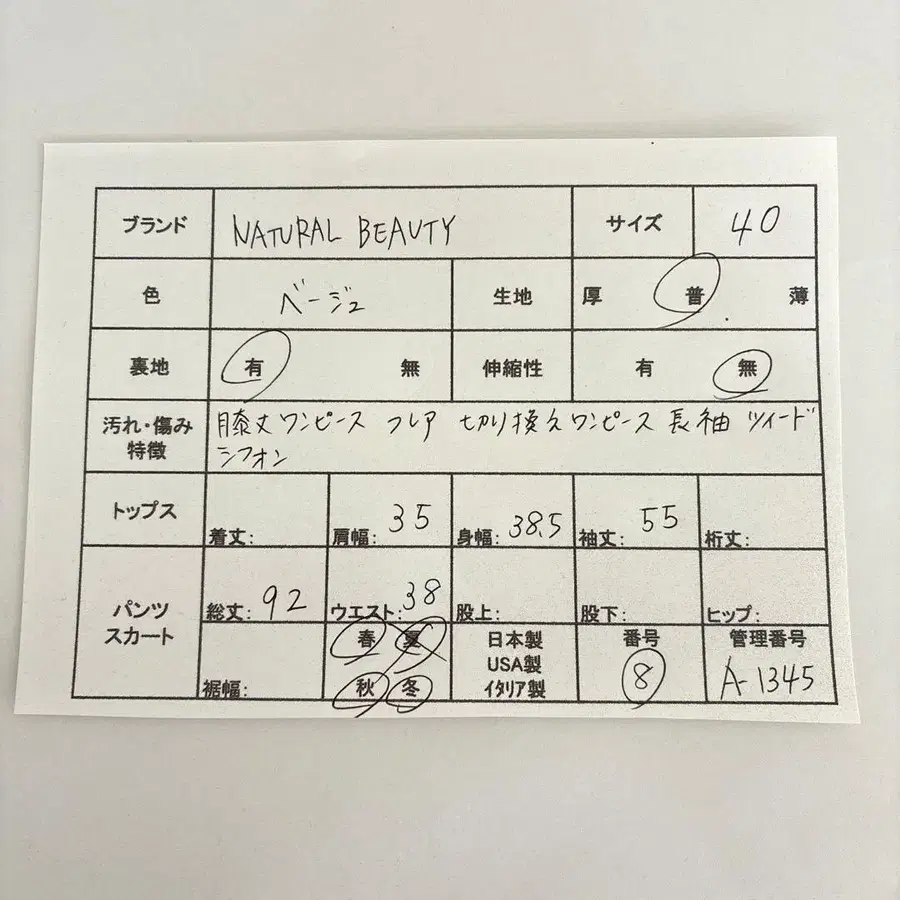 ブランド NATURAL BEAUTY サイズ 40
色 ベージュ 生地 厚 普 薄
裏地 有 無 伸縮性 有 無
汚れ・傷み
特徴
膝丈ワンピース フレア 切り換えワンピース 長袖 ツイード
シフォン
トップス 着丈: 肩幅: 35 身幅: 38.5 袖丈: 55 裄丈:
パンツ
スカート
総丈: 92 ウエスト: 38 股上: 股下: ヒップ:
裾幅:
春 夏
秋 冬
日本製
USA製
イタリア製
番号
8
管理番号
A-1345